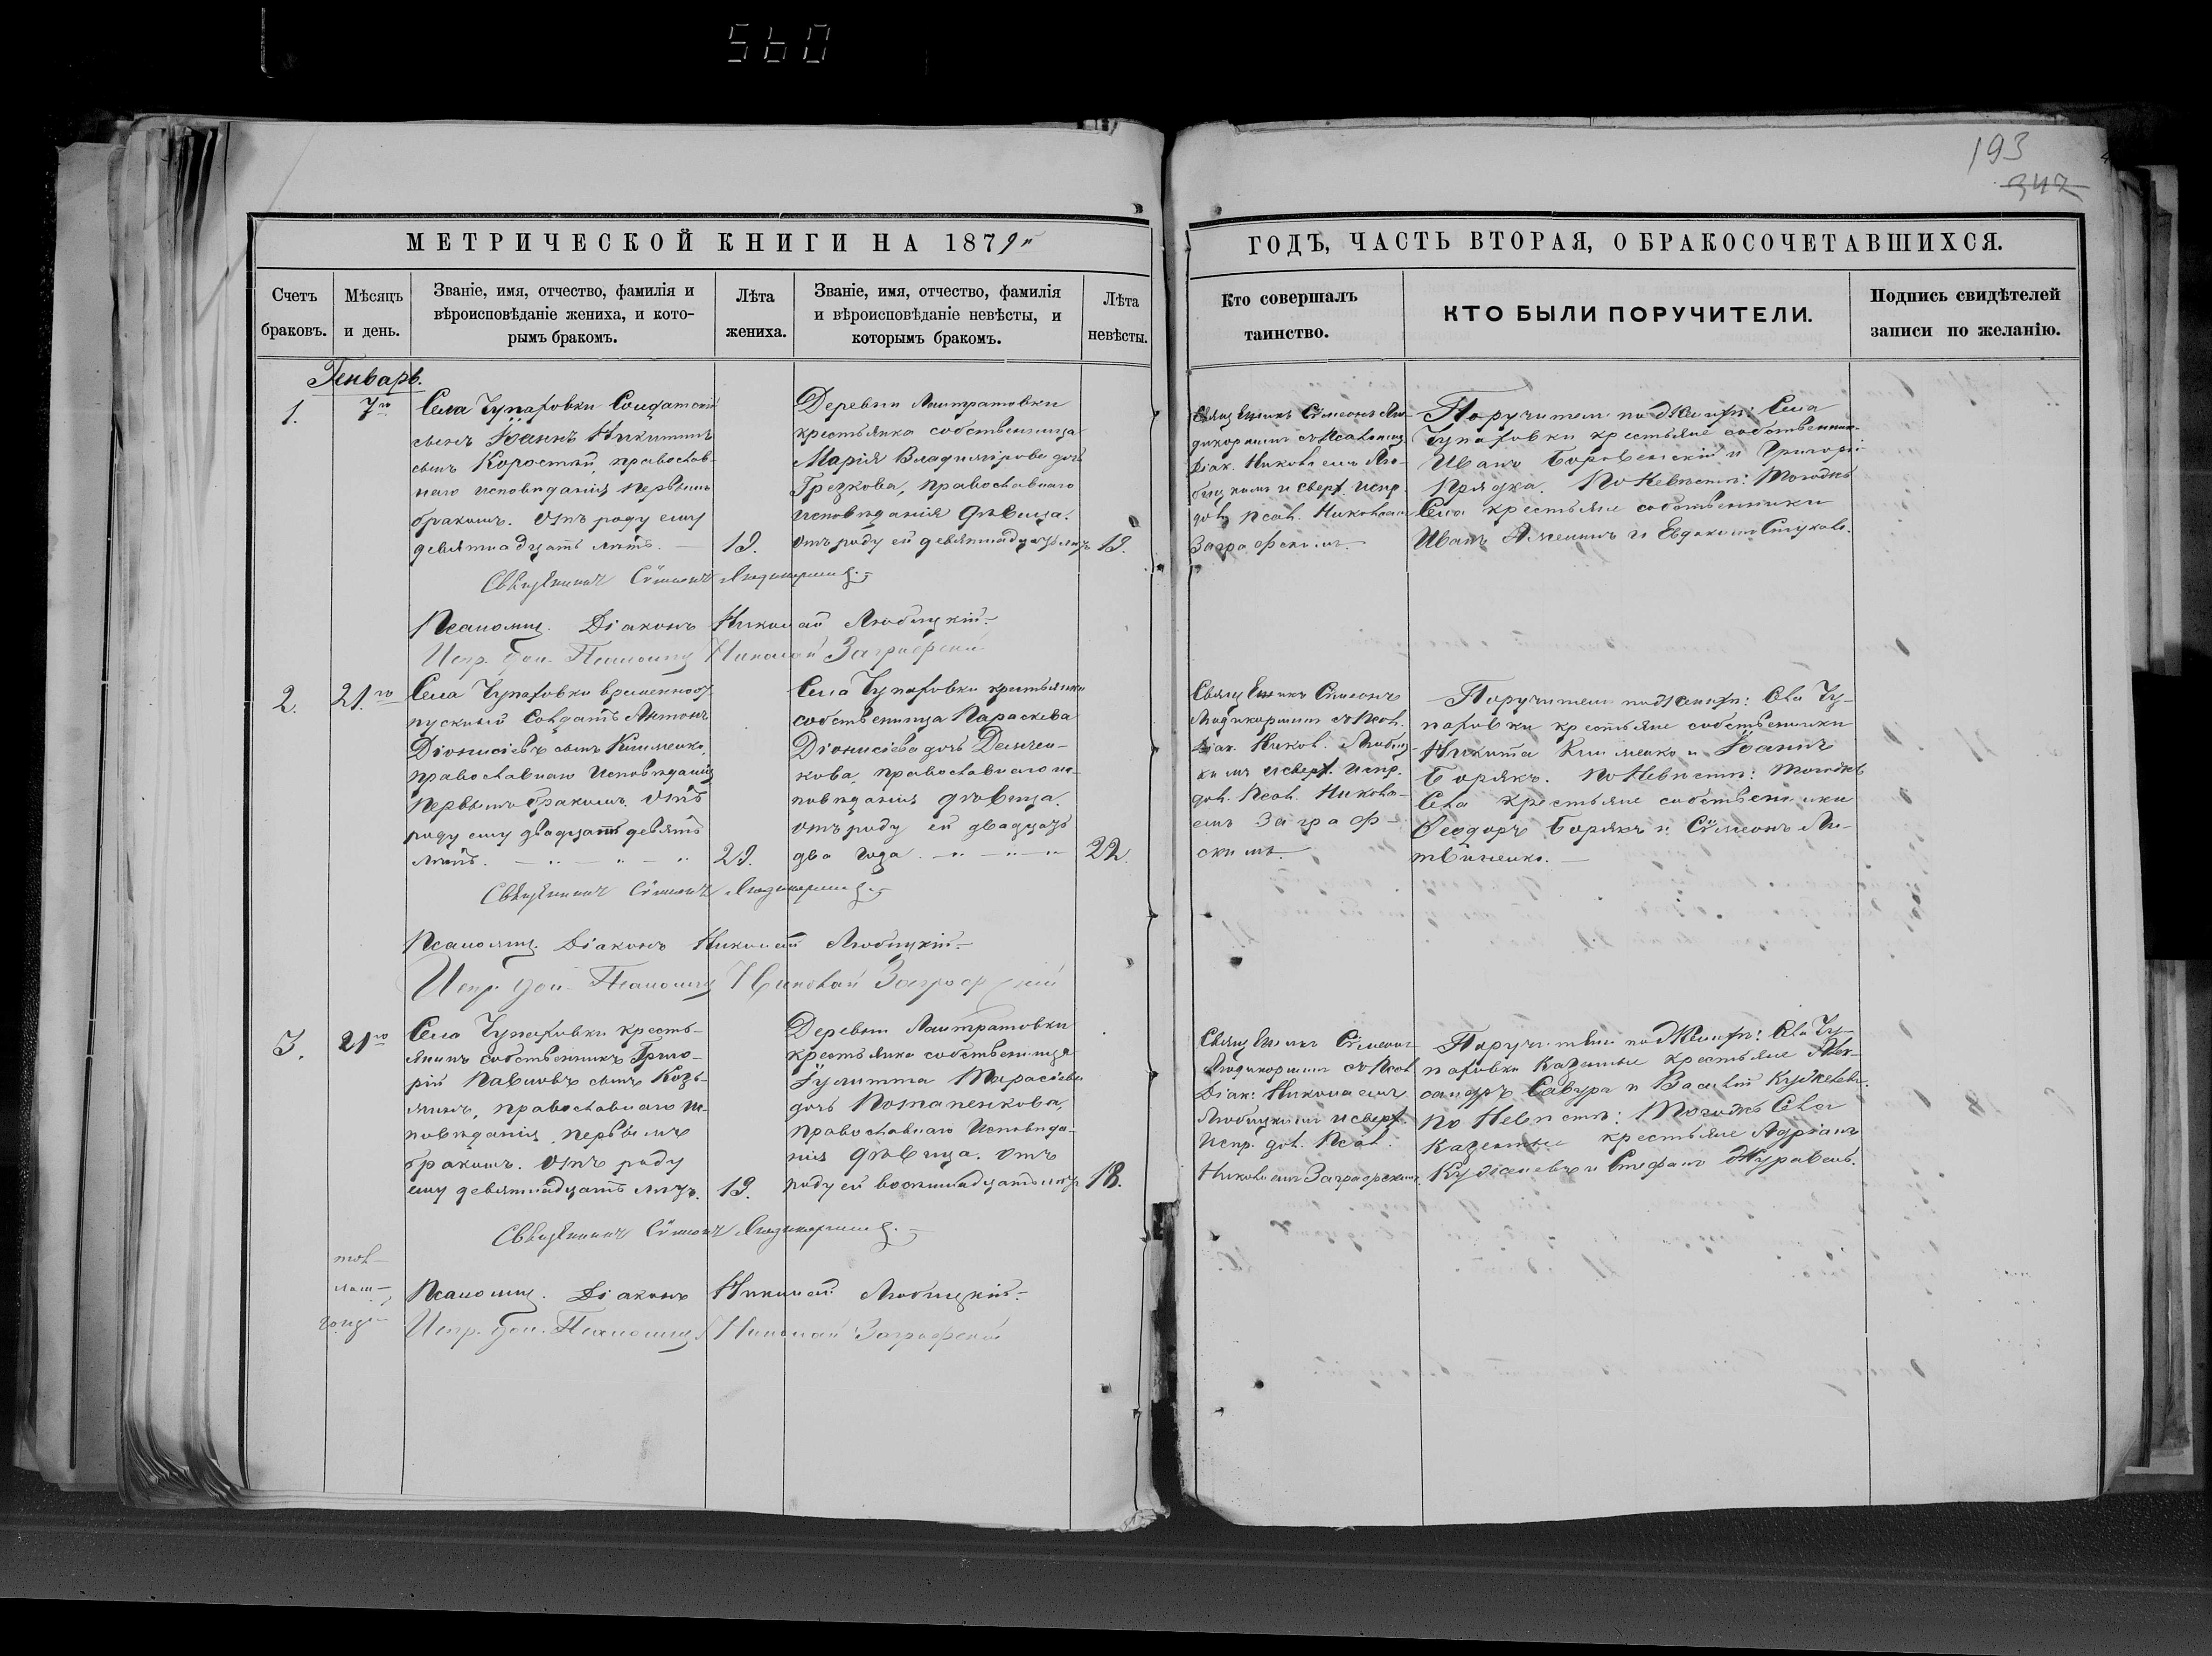 560
193
347
МЕТРИЧЕСКОЙ КНИГИ НА 1879й
ГОДЪ, ЧАСТЬ ВТОРАЯ, О БРАКОСОЧЕТАВШИХСЯ.
Счетъ браковъ.
Мѣсяцъ и день.
Званіе, имя, отчество, фамилія и
вѣроисповѣданіе жениха, и кото-
рымъ бракомъ.
Лѣта жениха.
Званіе, имя, отчество, фамилія
и вѣроисповѣданіе невѣсты, и
которымъ бракомъ.
Лѣта невѣсты.
Кто совершалъ
таинство.
КТО БЫЛИ ПОРУЧИТЕЛИ.
Подпись свидѣтелей
записи по желанію.
Генварь.
1.
7го
Села Чупаховки Солдатскій
сынъ Іоаннъ Никитинъ
сынъ Коростій, православ-
наго исповѣданія первымъ
бракомъ. Отъ роду ему
девятнадцать лѣтъ.
19.
Деревни
крестьянка собственница
Марія Владимірова дочь
Грезкова, православнаго
исповѣданія дѣвица.
Отъ роду ей девятнадцать лѣтъ
19.
Священникъ Сѵмеонъ
псаломщ.
Діак. Николаемъ Лю-
бицкимъ и сверх. испр.
долж. псал. Николаемъ
Заграфскимъ.
Поручители по женихѣ: Села
Чупаховки крестьяне собственники
Иванъ Боровенскій и Григорій
Прядка. По невѣстѣ: Тогожъ
Села крестьяне собственники
Иванъ и Евдокимъ
Священникъ Сѵмеонъ
Псаломщ. Діаконъ Николай Любицкій
Испр. дол. Псаломщ. Николай Заграфскій
2.
21го
Села Чупаховки временноот-
пускной Солдатъ Антонъ
Діонисіевъ сынъ Клименко,
православнаго исповѣданія
первымъ бракомъ. Отъ
роду ему двадцать девять
лѣтъ.
29.
Села Чупаховки крестьянка
собственница Параскева
Діонисіева дочь Демчен-
кова, православнаго ис-
повѣданія дѣвица.
Отъ роду ей двадцать
два года.
22.
Священникъ Сѵмеонъ
псал.
Діак. Никол. Любиц-
кимъ и сверх. испр.
дол. Псал. Никола-
емъ Заграф-
скимъ.
Поручители по женихѣ: Села Чу-
паховки крестьяне собственники
Никита Клименко и Іоаннъ
Борякъ. По невѣстѣ: тогожъ
Села крестьяне собственники
Ѳеодоръ Борякъ и Сѵмеонъ Ли-
твиненко.
Священникъ Сѵмеонъ
Псаломщ. Діаконъ Николай Любицкій
Испр. дол. Псаломщ. Николай Заграфскій
3.
21го
Села Чупаховки кресть-
янинъ собственникъ Григо-
рій Павловъ сынъ Козь-
минъ, православнаго ис-
повѣданія, первымъ
бракомъ. Отъ роду
ему девятнадцать лѣтъ.
19.
Деревни
крестьянка собственница
Іулитта Тарасіева
дочь Потапенкова,
православнаго исповѣда-
нія дѣвица. Отъ
роду ей восемнадцать лѣтъ
18.
Священникъ Сѵмеонъ
псал.
Діак. Николаемъ
Любицкимъ и сверх.
Испр. дол. Псал.
Николаемъ Заграфскимъ.
Поручители по женихѣ: Села Чу-
паховки казенные крестьяне Алек-
сандръ Савура и Василій
По невѣстѣ: Тогожъ Села
казенные крестьяне Адріанъ
и Стефанъ Журавель.
Священникъ Сѵмеонъ
Псаломщ. Діаконъ Николай Любицкій
Испр. дол. Псаломщ. Николай Заграфскій